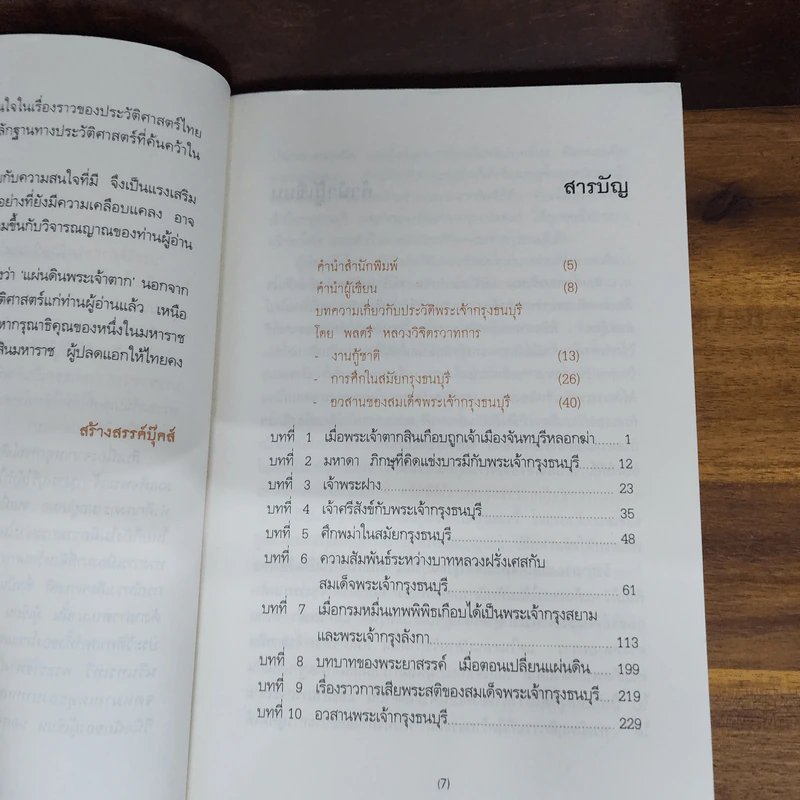 นใจในเรื่องราวของประวัติศาสตร์ไทย
ลักฐานทางประวัติศาสตร์ที่ค้นคว้าใน
กับความสนใจที่มี จึงเป็นแรงเสริม
อย่างที่ยังมีความเคลือบแคลง อาจ
มขึ้นกับวิจารณญาณของท่านผู้อ่าน
งว่า 'แผ่นดินพระเจ้าตาก' นอกจาก
ติศาสตร์แก่ท่านผู้อ่านแล้ว เหนือ
หากรุณาธิคุณของหนึ่งในมหาราช
สินมหาราช ผู้ปลดแอกให้ไทยคง
สร้างสรรค์บุ๊คส์
สารบัญ
คำนำสำนักพิมพ์ (5)
คำนำผู้เขียน (8)
บทความเกี่ยวกับประวัติพระเจ้ากรุงธนบุรี
โดย พลตรี หลวงวิจิตรวาทการ
- งานกู้ชาติ (13)
- การศึกในสมัยกรุงธนบุรี (26)
- อวสานของสมเด็จพระเจ้ากรุงธนบุรี (40)
บทที่ 1 เมื่อพระเจ้าตากสินเกือบถูกเจ้าเมืองจันทบุรีหลอกฆ่า 1
บทที่ 2 มหาดา ภิกษุที่คิดแข่งบารมีกับพระเจ้ากรุงธนบุรี 12
บทที่ 3 เจ้าพระฝาง 23
บทที่ 4 เจ้าศรีสังข์กับพระเจ้ากรุงธนบุรี 35
บทที่ 5 ศึกพม่าในสมัยกรุงธนบุรี 48
บทที่ 6 ความสัมพันธ์ระหว่างบาทหลวงฝรั่งเศสกับ
สมเด็จพระเจ้ากรุงธนบุรี 61
บทที่ 7 เมื่อกรมหมื่นเทพพิพิธเกือบได้เป็นพระเจ้ากรุงสยาม
และพระเจ้ากรุงลังกา 113
บทที่ 8 บทบาทของพระยาสรรค์ เมื่อตอนเปลี่ยนแผ่นดิน 199
บทที่ 9 เรื่องราวการเสียพระสติของสมเด็จพระเจ้ากรุงธนบุรี 219
บทที่ 10 อวสานพระเจ้ากรุงธนบุรี 229
(7)